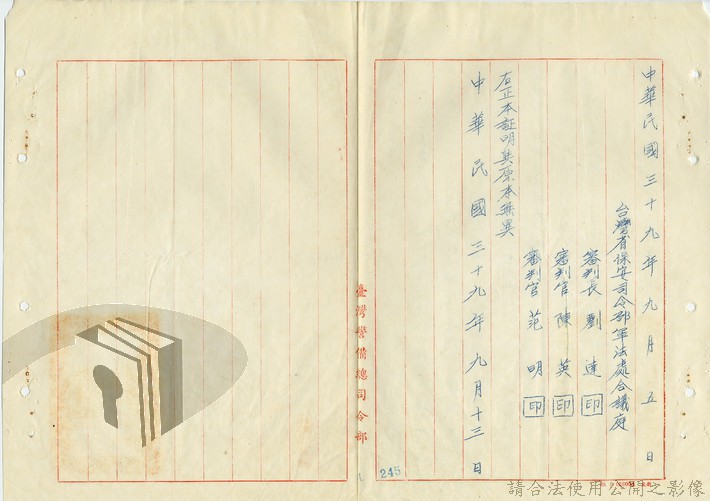 中華民國三十九年九月五日
台灣省保安司令部軍法處合議庭
審判長劉達印
審判官陳英印
審判官范明印
右正本証明與原本無異
中華民國三十九年九月十三日
245
臺灣警備總司令部
請合法使用公開之影像